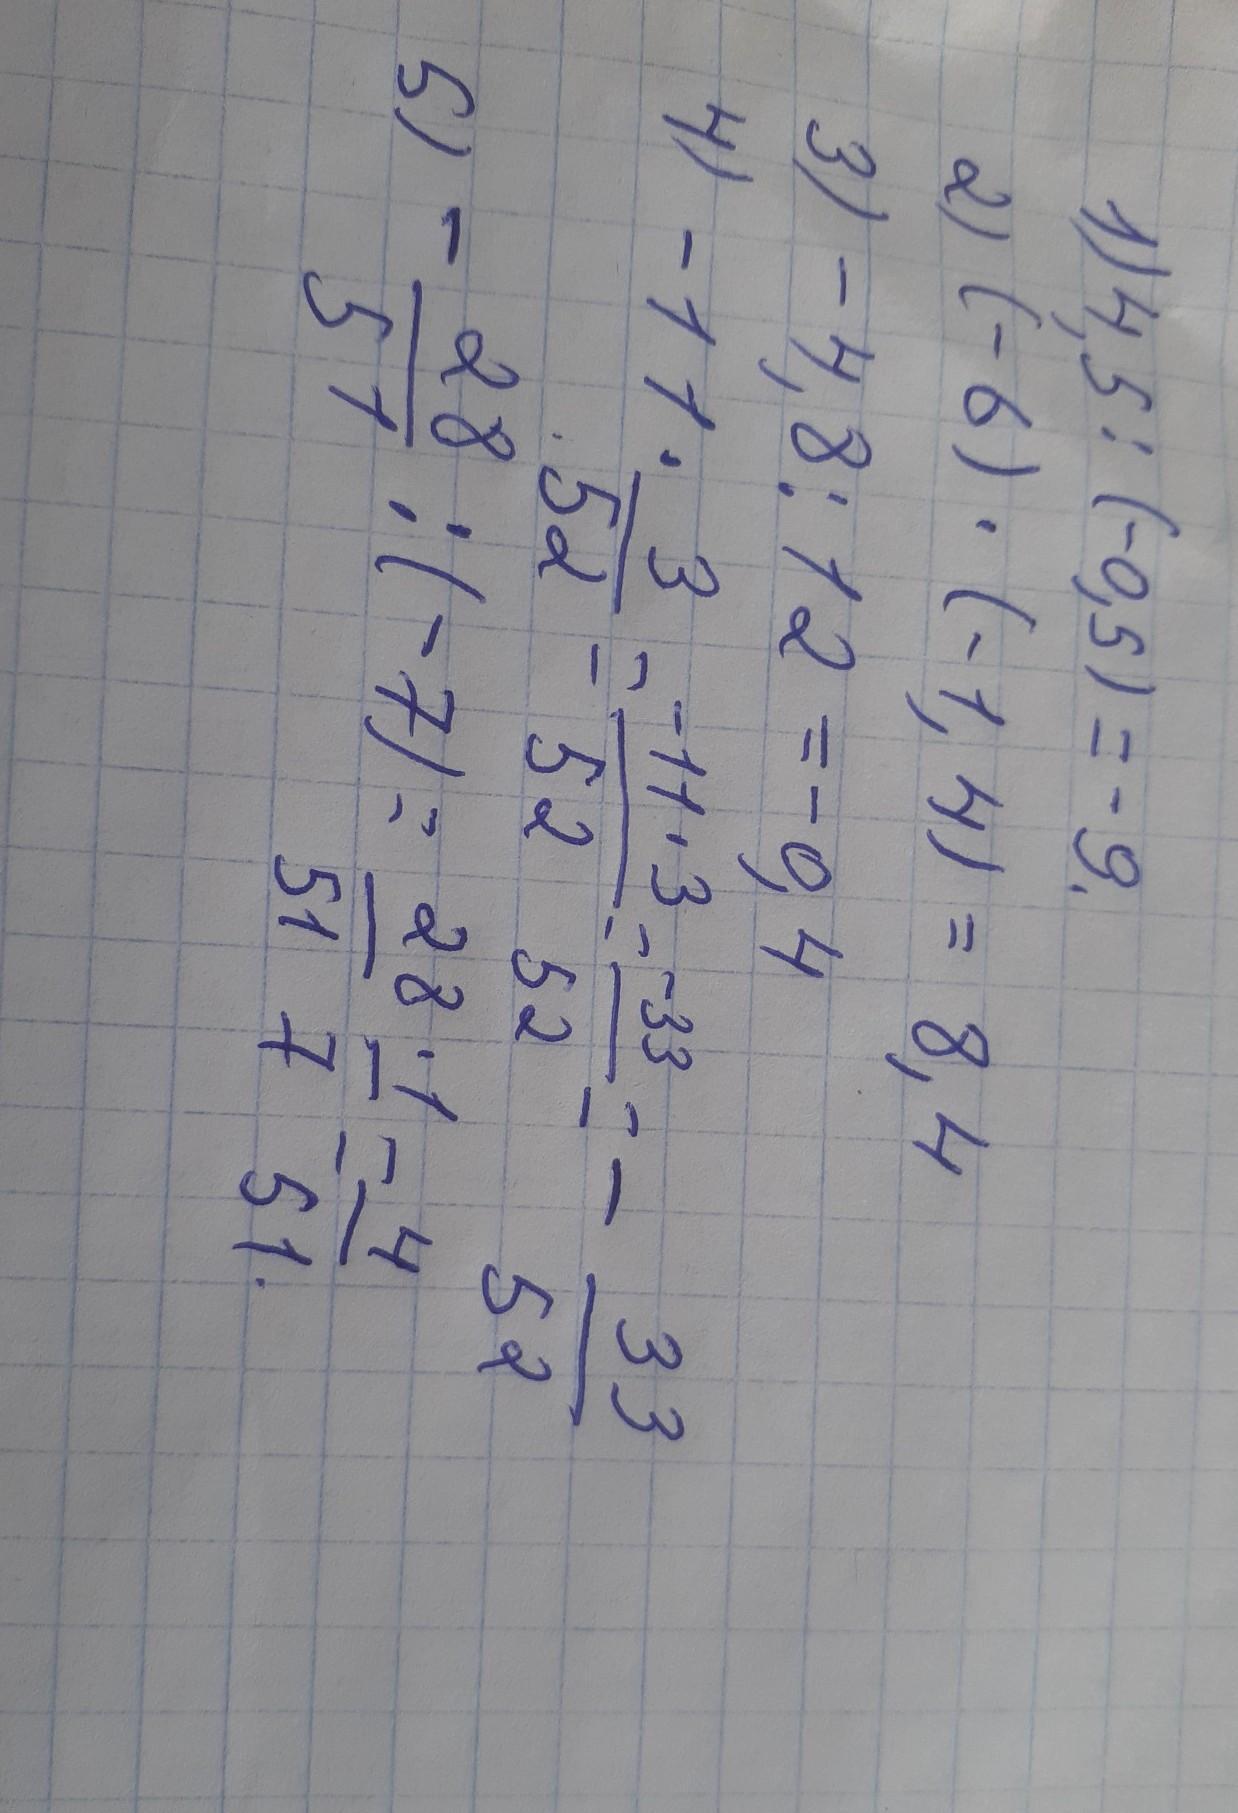 1) 4,5 : (-0,5) = -9.
2) (-6) · (-1,4) = 8,4
3) -4,8 : 12 = -0,4
4) -11 · 3/52 = -11·3/52 = -33/52 = - 33/52
5) - 28/51 : (-7) = 28/51 · 1/7 = 4/51.